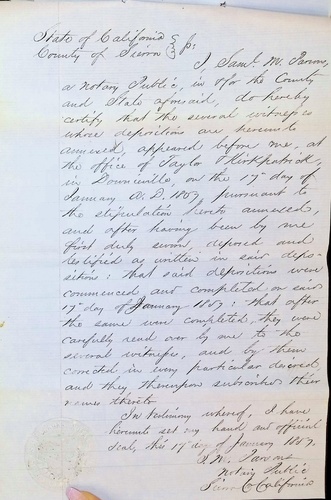 State of California } ss:
County of Sierra }
I, Saml. M. Parsons,
a Notary Public, in & for the County
and State aforesaid, do hereby
certify that the several witnesses
whose depositions are hereunto
annexed, appeared before me, at
the office of Taylor & Kirkpatrick,
in Downieville, on the 17th day of
January A.D. 1857, pursuant to
the stipulation hereto annexed,
and after having been by me
first duly sworn, deposed and
testified as written in said depo-
sitions: that said depositions were
commenced and completed on said
17th day of January 1857: that after
the same were completed, they were
carefully read over by me to the
several witnesses, and by them
corrected in every particular desired,
and they thereupon subscribed their
names thereto
In testimony whereof, I have
hereunto set my hand and official
seal, this 17th day of January 1857.
S. M. Parsons
Notary Public
Sierra Co California